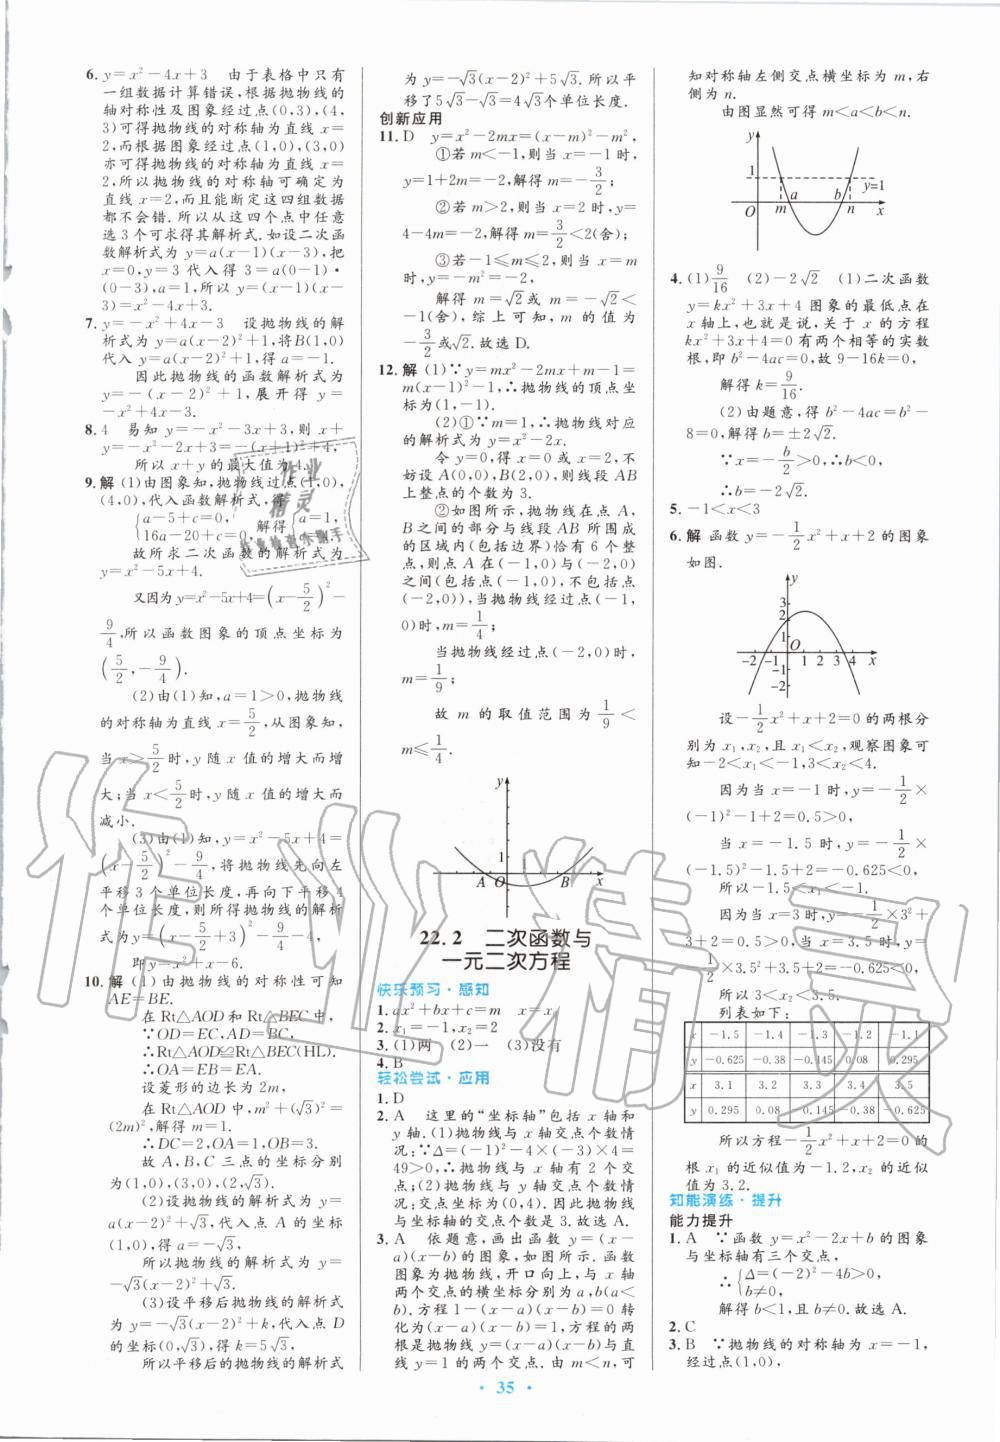 6. y=x²-4x+3 由于表格中只有
一组数据计算错误,根据抛物线的
轴对称性及图象经过点(0,3),(4,
3)可得抛物线的对称轴为直线 x=
2,而根据图象经过点(1,0),(3,0)
亦可得抛物线的对称轴可确定为
直线 x=2,而且能断定这四组数据
都不会错.所以从这四个点中任意
选 3 个可求得其解析式.如设二次函
数解析式为 y=a(x-1)(x-3),把
x=0,y=3 代入得 3=a(0-1)·
(0-3),所以 a=1,所以 y=(x-1)(x-
3)=x²-4x+3.
7. y=-x²+4x-3 设抛物线的解
析式为 y=a(x-2)²+1,将B(1,0)
代入 y=a(x-2)²+1,得 a=-1.
因此抛物线的函数解析式为
y=-(x-2)²+1,展开得 y=
-x²+4x-3.
8. 4 易知 y=-x²-3x+3,则 x+
y=-x²-2x+3=-(x+1)²+4,
所以 x+y 的最大值为 4.
9. 解 (1)由图象知,抛物线过点(1,0),
(4,0),代入函数解析式,得
{a-5+c=0, 16a-20+c=0, 解得{a=1, c=4.
故所求二次函数的解析式为
y=x²-5x+4.
又因为 y=x²-5x+4=(x-5/2)²-
9/4,所以函数图象的顶点坐标为
(5/2,-9/4).
(2)由(1)知,a=1>0,抛物线
的对称轴为直线 x=5/2,从图象知,
当 x>5/2时,y 随 x 值的增大而增
大;当 x<5/2时,y 随 x 值的增大而
减小.
(3)由(1)知,y=x²-5x+4=
(x-5/2)²-9/4,将抛物线先向左
平移 3 个单位长度,再向下平移 4
个单位长度,则所得抛物线的解析
式为y=(x-5/2+3)²-9/4-4,
即y=x²+x-6.
10. 解 (1)由抛物线的对称性可知
AE=BE.
在 Rt△AOD 和 Rt△BEC 中,
∵OD=EC,AD=BC,
∴Rt△AOD≌Rt△BEC(HL).
∴OA=EB=EA.
设菱形的边长为 2m,
在 Rt△AOD 中,m²+(√3)²=
(2m)²,解得 m=1.
∴DC=2,OA=1,OB=3.
故 A,B,C 三点的坐标分别
为(1,0),(3,0),(2,√3).
(2)设抛物线的解析式为 y=
a(x-2)²+√3,代入点 A 的坐标
(1,0),得 a=-√3.
所以抛物线的解析式为 y=
-√3(x-2)²+√3.
(3)设平移后抛物线的解析式
为 y=-√3(x-2)²+k,代入点 D
的坐标(0,√3),得 k=5√3.
所以平移后的抛物线的解析式
为 y=-√3(x-2)²+5√3.所以平
移了5√3-√3=4√3个单位长度.
创新应用
11. D y=x²-2mx=(x-m)²-m²,
①若 m<-1,则当 x=-1 时,
y=1+2m=-2,解得 m=-3/2;
②若 m>2,则当 x=2时,y=
4-4m=-2,解得 m=3/2<2(舍);
③若-1≤m≤2,则当 x=m
时,y=-m²=-2,
解得 m=√2或 m=-√2<
-1(舍),综上可知,m 的值为
-3/2或√2.故选 D.
12. 解 (1)∵y=mx²-2mx+m-1=
m(x-1)²-1,∴抛物线的顶点坐
标为(1,-1).
(2)①∵m=1,∴抛物线对应
的解析式为 y=x²-2x.
令 y=0,得 x=0 或 x=2,不
妨设 A(0,0),B(2,0),则线段 AB
上整点的个数为 3.
②如图所示,抛物线在点 A,
B 之间的部分与线段 AB 所围成
的区域内(包括边界)恰有 6 个整
点,则点 A 在(-1,0)与(-2,0)之
间(包括点(-1,0),不包括点
(-2,0)),当抛物线经过点(-1,
0)时,m=1/4;
当抛物线经过点(-2,0)时,
m=1/9;
故 m 的取值范围为 1/9<
m≤1/4.
y
1
A O B x
22.2 二次函数与
一元二次方程
快乐预习·感知
1. ax²+bx+c=m x=x₀
2. x₁=-1,x₂=2
3. (1)两 (2)一 (3)没有
4. B
轻松尝试·应用
1. D
2. A 这里的“坐标轴”包括 x 轴和
y 轴.(1)抛物线与 x 轴交点个数情
况:∵Δ=(-1)²-4×(-3)×4=
49>0,∴抛物线与 x 轴有 2 个交
点;(2)抛物线与 y 轴交点个数情
况:交点为(0,4).因此抛物线与
坐标轴的交点个数是 3.故选 A.
3. A 依题意,画出函数 y=(x-
a)(x-b)的图象,如图所示.函数
图象为抛物线,开口向上,与 x 轴
两个交点的横坐标分别为 a,b(a<
b).方程 1-(x-a)(x-b)=0 转
化为(x-a)(x-b)=1,方程的两
根是抛物线y=(x-a)(x-b)与直
线 y=1 的两个交点.由 m<n,可
知对称轴左侧交点横坐标为 m,右
侧为 n.
由图显然可得 m<a<b<n.
y
1 y=1
O m a b n x
4. (1)9/16 (2)-2√2 (1)二次函数
y=kx²+3x+4 图象的最低点在
x 轴上,也就是说,关于 x 的方程
kx²+3x+4=0 有两个相等的实数
根,即 b²-4ac=0,故 9-16k=0,
解得 k=9/16.
(2)由题意,得 b²-4ac=b²-
8=0,解得 b=±2√2.
∵x=-b/2>0,∴b<0.
∴b=-2√2.
5. -1<x<3
6. 解 函数 y=-1/2x²+x+2 的图象
如图.
y
3
2
-2 -1 O 1 2 3 4 x
-1
-2
设-1/2x²+x+2=0 的两根分
别为 x₁,x₂,且x₁<x₂,观察图象可
知-2<x₁<-1,3<x₂<4.
因为当 x=-1 时,y=-1/2×
(-1)²-1+2=0.5>0,
当 x=-1.5 时,y=-1/2×
(-1.5)²-1.5+2=-0.625<0,
所以-1.5<x₁<-1.
因为当 x=3时,y=0.5>0,
当 x=3.5 时,y=
-1/2×3.5²+3.5+2=-0.625<0,
所以 3<x₂<3.5.
列表如下:
x -1.5 -1.4 -1.3 -1.2 -1.1
y -0.625 -0.38 -0.145 0.08 0.295
x 3.1 3.2 3.3 3.4 3.5
y 0.295 0.08 -0.145 -0.38 -0.625
所以方程-1/2x²+x+2=0 的
根 x₁ 的近似值为-1.2,x₂ 的近似
值为 3.2.
知能演练·提升
能力提升
1. A ∵函数 y=x²-2x+b 的图象
与坐标轴有三个交点,
∴{Δ=(-2)²-4b>0, b≠0,
解得 b<1,且 b≠0.故选 A.
2. C
3. B ∵抛物线的对称轴为 x=-1,
经过点(1,0),
· 35 ·
作业精灵
作业精灵